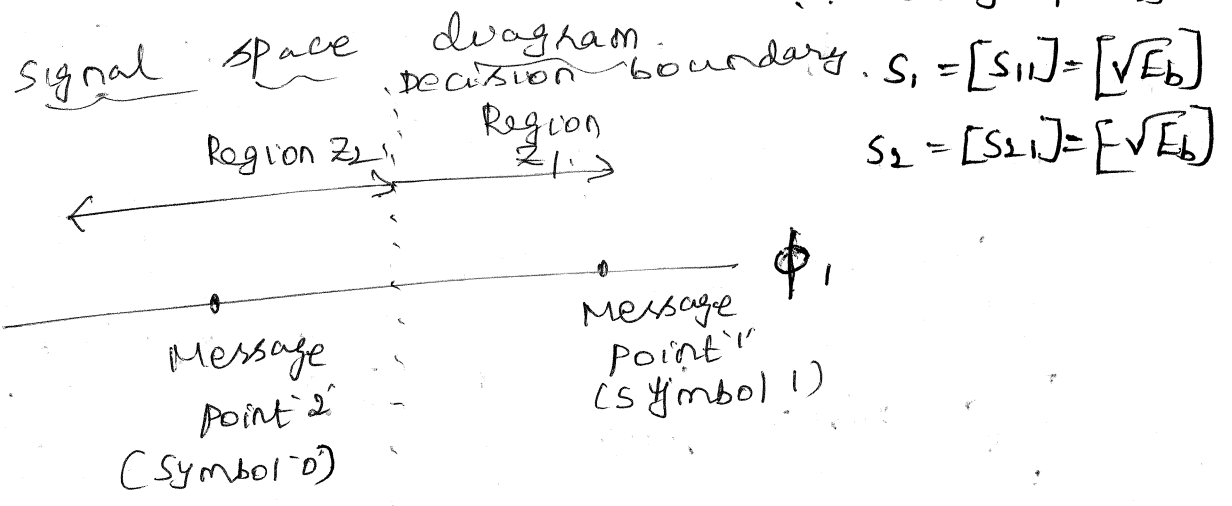 signal space diagram.
Decision boundary.
S₁ = [S₁₁] = [√Eb]
S₂ = [S₂₁] = [-√Eb]
Region Z₂
Region
Z₁
ϕ₁
Message
point '1'
(symbol 1)
Message
point '2'
(symbol '0')